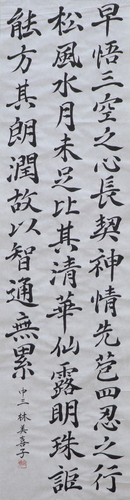 早悟三空之心長契神情先苞四忍之行
松風水月未足比其清華仙露明珠詎
能方其朗潤故以智通無累
中三 林美喜子